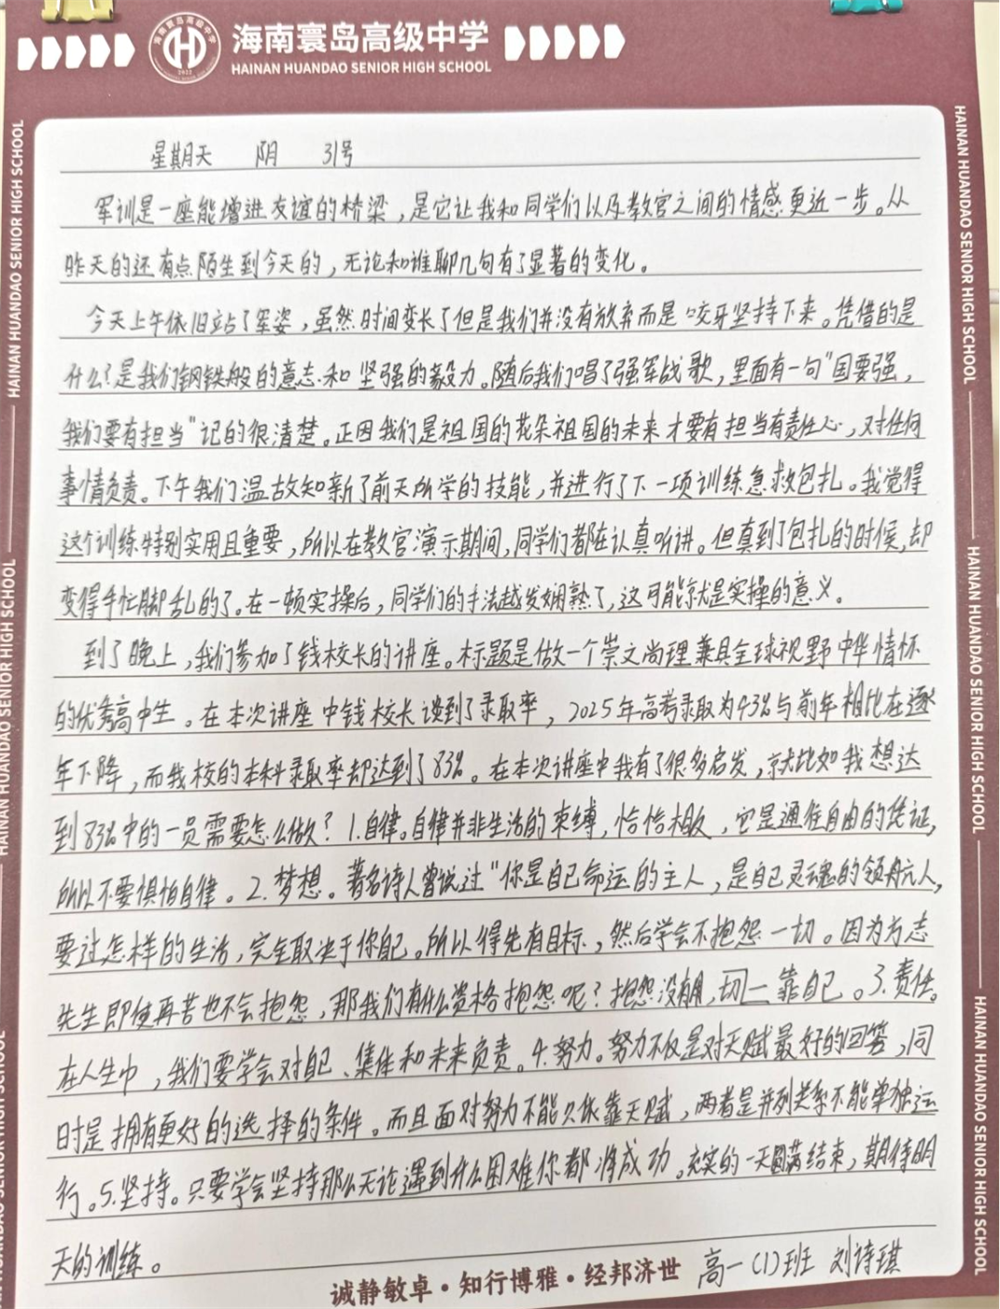 海南寰岛高级中学
HAINAN HUANDAO SENIOR HIGH SCHOOL
星期天 阴 31号
军训是一座能增进友谊的桥梁，是它让我和同学们以及教官之间的情感更近一步。从
昨天的还有点陌生到今天的，无论和谁聊几句有了显著的变化。
今天上午依旧站了军姿，虽然时间变长了但是我们并没有放弃而是咬牙坚持下来。凭借的是
什么？是我们钢铁般的意志和坚强的毅力。随后我们唱了强军战歌，里面有一句“国要强，
我们要有担当”记的很清楚。正因我们是祖国的花朵祖国的未来才要有担当有责任心，对任何
事情负责。下午我们温故知新了前天所学的技能，并进行了下一项训练急救包扎。我觉得
这个训练特别实用且重要，所以在教官演示期间，同学们都在认真听讲。但真到了包扎的时候，却
变得手忙脚乱的了。在一顿实操后，同学们的手法越发娴熟了，这可能就是实操的意义。
到了晚上，我们参加了钱校长的讲座。标题是做一个崇文尚理兼具全球视野中华情怀
的优秀高中生。在本次讲座中钱校长谈到了录取率，2025年高考录取为43%与前年相比在逐
年下降，而我校的本科录取率却达到了83%。在本次讲座中我有了很多启发，就比如我想达
到83%中的一员需要怎么做？1.自律。自律并非生活的束缚，恰恰相反，它是通往自由的凭证，
所以不要惧怕自律。2.梦想。著名诗人曾说过“你是自己命运的主人，是自己灵魂的领航人，
要过怎样的生活，完全取决于你自己。所以得先有目标，然后学会不抱怨一切。因为方志
先生即使再苦也不会抱怨，那我们有什么资格抱怨呢？抱怨没有用，一切靠自己。3.责任。
在人生中，我们要学会对自己、集体和未来负责。4.努力。努力不仅是对天赋最好的回答，同
时是拥有更好的选择的条件。而且面对努力不能只依靠天赋，两者是并列关系不能单独运
行。5.坚持。只要学会坚持那么无论遇到什么困难你都将成功。充实的一天圆满结束，期待明
天的训练。
高一（1）班 刘诗琪
诚静敏卓·知行博雅·经邦济世
HAINAN HUANDAO SENIOR HIGH SCHOOL
HAINAN HUANDAO SENIOR HIGH SCHOOL
HAINAN HUANDAO SENIOR HIGH SCHOOL
HAINAN HUANDAO SENIOR HIGH SCHOOL
HAINAN HUANDAO SENIOR HIGH SCHOOL